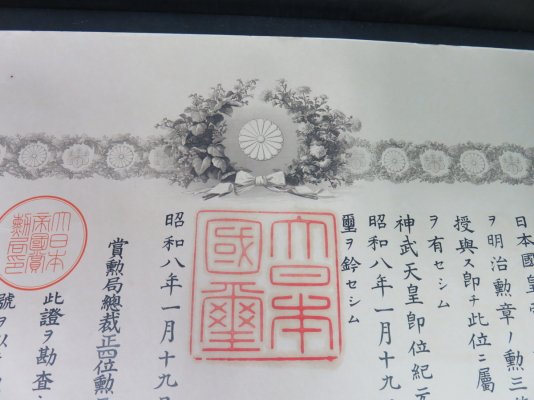 日本國皇帝
ヲ明治勲章ノ勲三等
授與ス即チ此位ニ屬
ヲ有セシム
神武天皇即位紀元
昭和八年一月十九
璽ヲ鈐セシム
大日本
國璽
昭和八年一月十九日
賞勲局總裁正四位勲
此證ヲ勘査
號ヲ以テ
大日本
帝國賞
勲局印